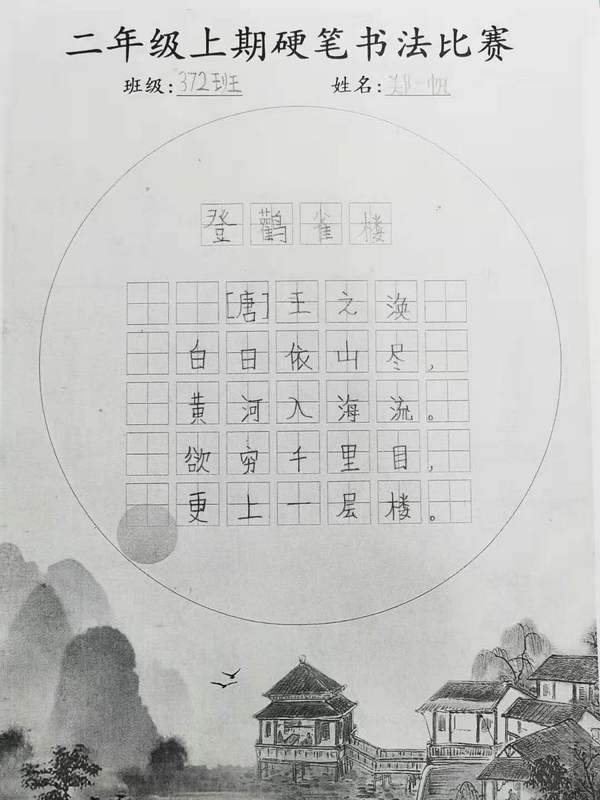 二年级上期硬笔书法比赛
班级:372班 姓名:郑一帆
登鹳雀楼
[唐]王之涣
白日依山尽,
黄河入海流。
欲穷千里目,
更上一层楼。